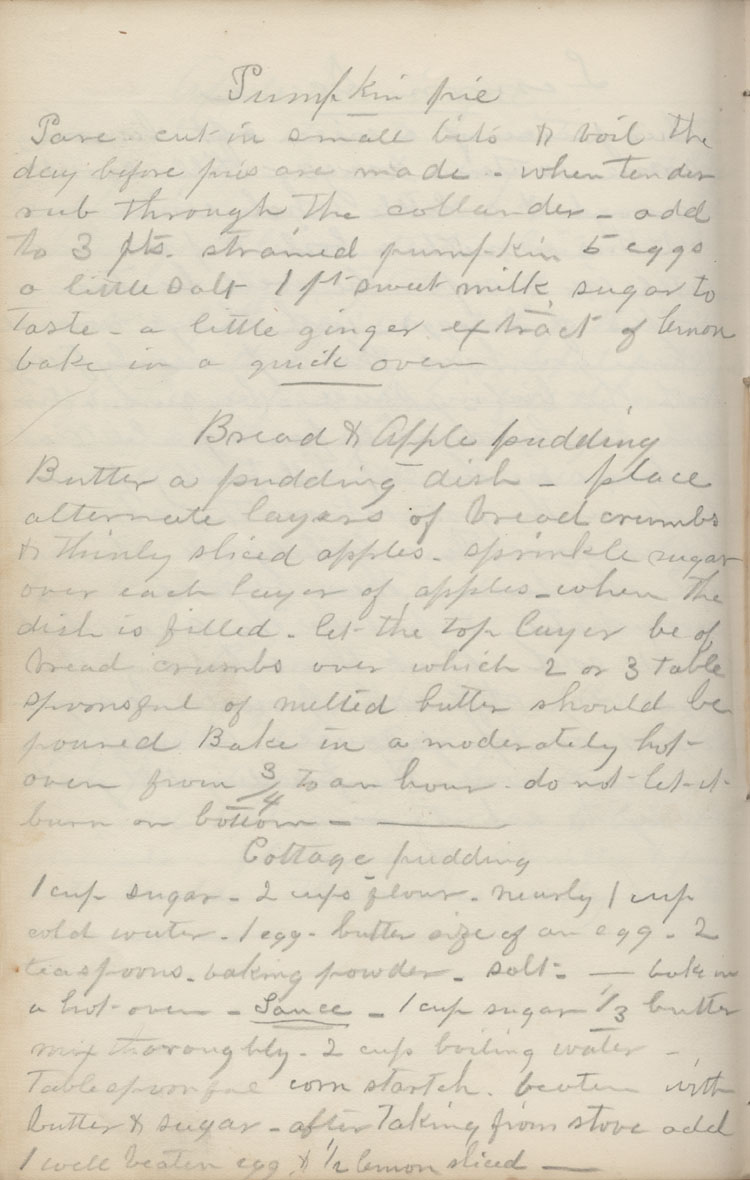 Pumpkin pie
Pare cut in small bits & boil the
day before pies are made - when tender
rub through the collander - add
to 3 pts. strained pumpkin 5 eggs
a little salt 1 pt sweet milk, sugar to
taste - a little ginger extract of lemon
bake in a quick oven
Bread & Apple pudding
Butter a pudding dish - place
alternate layers of bread crumbs
& thinly sliced apples - sprinkle sugar
over each layer of apples - when the
dish is filled - let the top layer be of
bread crumbs over which 2 or 3 table
spoonsful of melted butter should be
poured Bake in a moderately hot
oven from 3/4 to an hour - do not let it
burn on bottom -
Cottage pudding
1 cup sugar - 2 cups flour - nearly 1 cup
cold water - 1 egg - butter size of an egg - 2
teaspoons baking powder - salt - — bake in
a hot oven - Sauce - 1 cup sugar 1/3 butter
mix thoroughly - 2 cups boiling water -
Tablespoonful corn starch. beaten with
butter & sugar - after taking from stove add
1 well beaten egg & 1/2 lemon sliced —